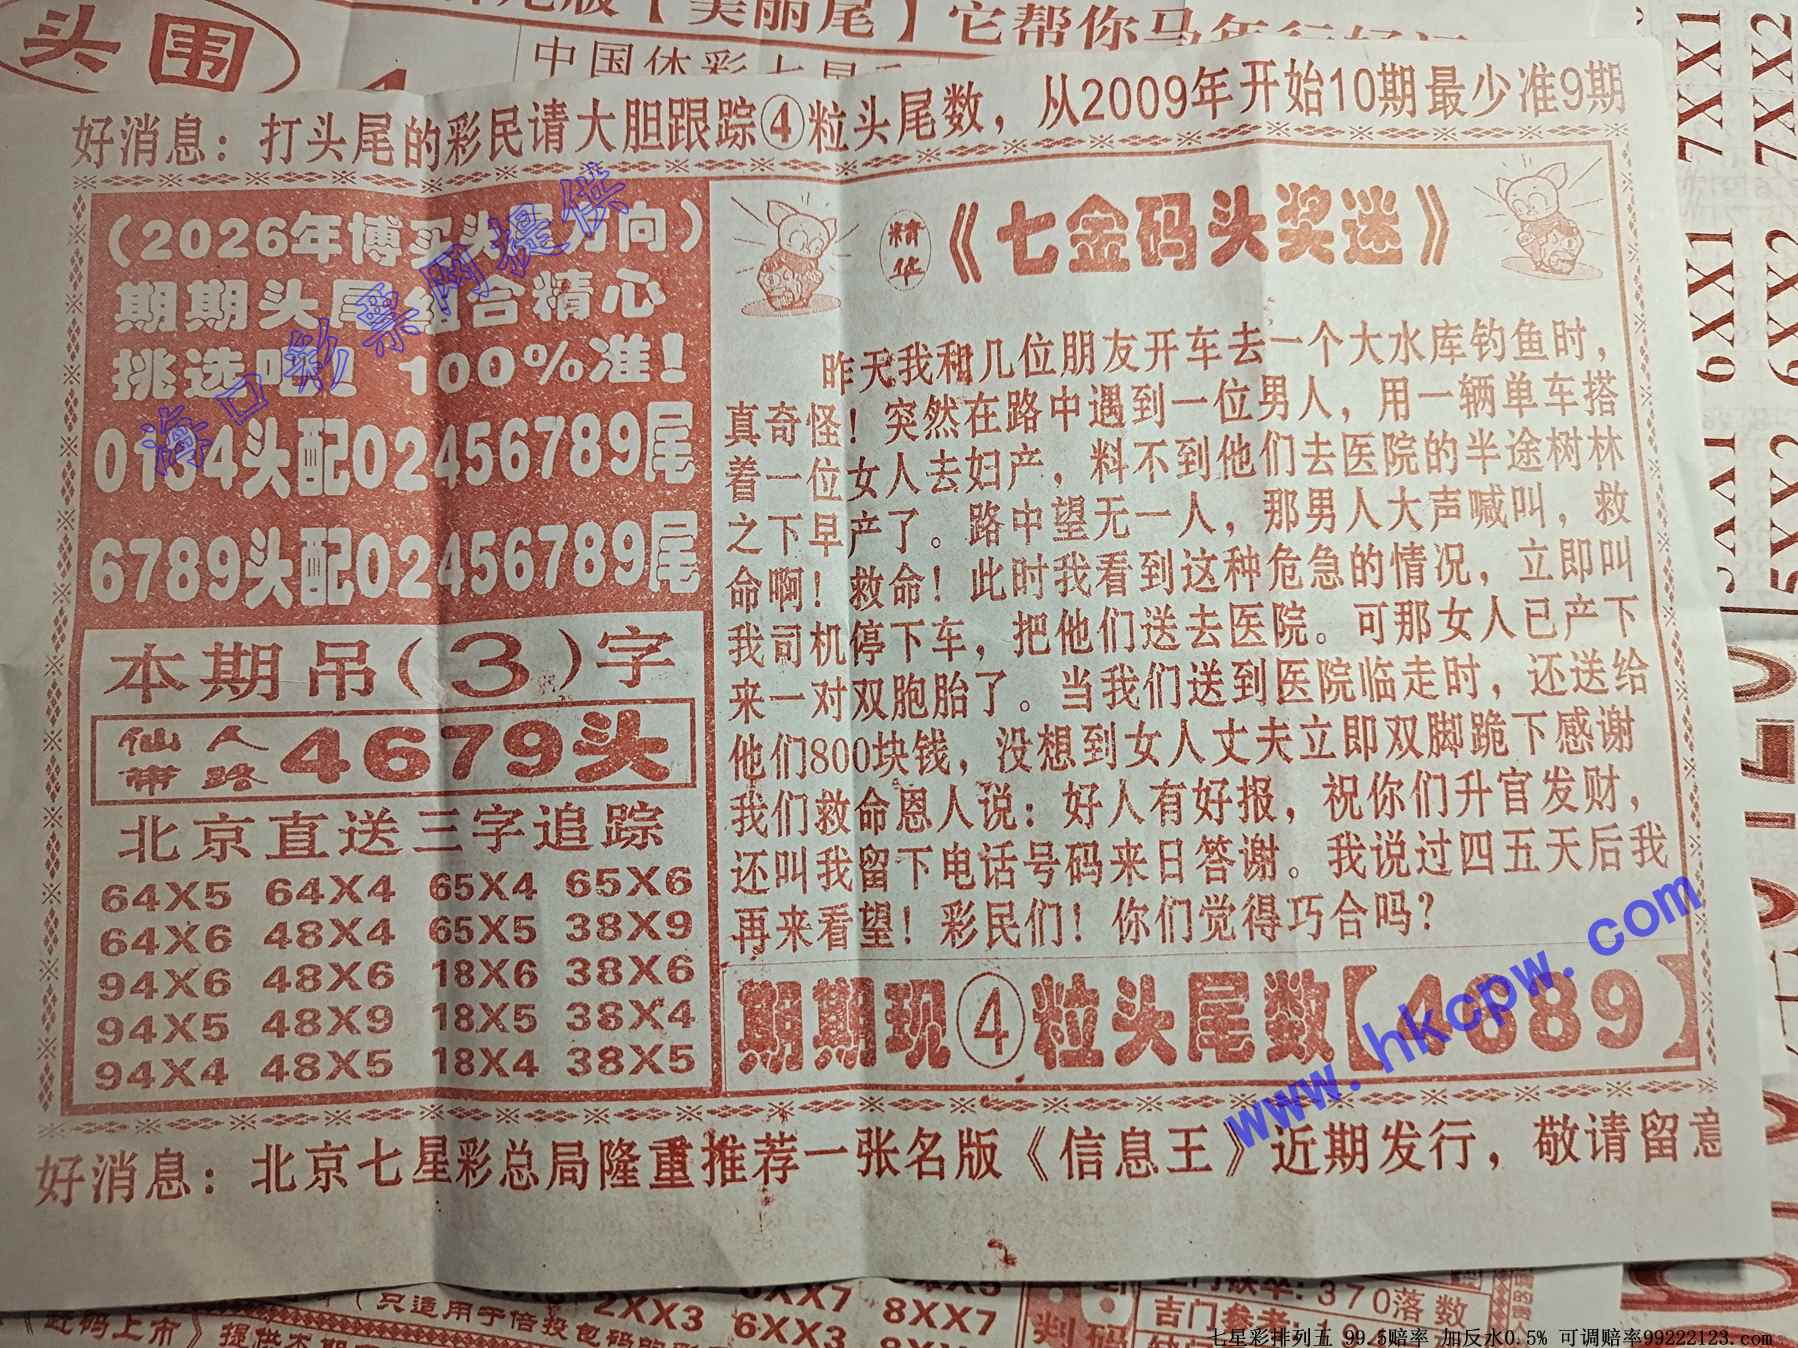 头围
【美丽尾】它帮你马年行好运
中国体彩七星
好消息：打头尾的彩民请大胆跟踪④粒头尾数，从2009年开始10期最少准9期
（2026年博买头尾方向）
期期头尾组合精心
挑选吧！100%准！
0134头配02456789尾
6789头配02456789尾
海口彩票网提供
本期吊（3）字
仙人带路 4679头
北京直送三字追踪
64X5 64X4 65X4 65X6
64X6 48X4 65X5 38X9
94X6 48X6 18X6 38X6
94X5 48X9 18X5 38X4
94X4 48X5 18X4 38X5
精华《七金码头奖迷》
昨天我和几位朋友开车去一个大水库钓鱼时，
真奇怪！突然在路中遇到一位男人，用一辆单车搭
着一位女人去妇产，料不到他们去医院的半途树林
之下早产了。路中望无一人，那男人大声喊叫，救
命啊！救命！此时我看到这种危急的情况，立即叫
我司机停下车，把他们送去医院。可那女人已产下
来一对双胞胎了。当我们送到医院临走时，还送给
他们800块钱，没想到女人丈夫立即双脚跪下感谢
我们救命恩人说：好人有好报，祝你们升官发财，
还叫我留下电话号码来日答谢。我说过四五天后我
再来看望！彩民们！你们觉得巧合吗？
期期现④粒头尾数【4689】
www.hkcpw.com
好消息：北京七星彩总局隆重推荐一张名版《信息王》近期发行，敬请留意
7XX1 7XX2
6XX1 6XX2
5XX1 5XX2
（只适用于倍投包码的
2XX3 6XX7 8XX7
6XX3
370落数
吉门参考:
判码
七星彩排列五 99.5赔率 加反水0.5% 可调赔率99222123.com